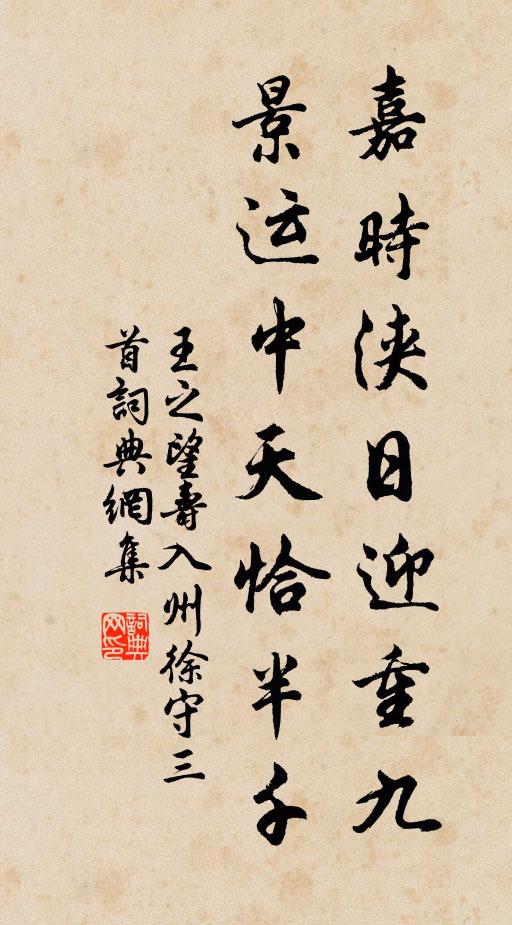 嘉時浹日迎重九
景运中天恰半千
王之望壽入州徐守三
首詞典網集
詞典网印